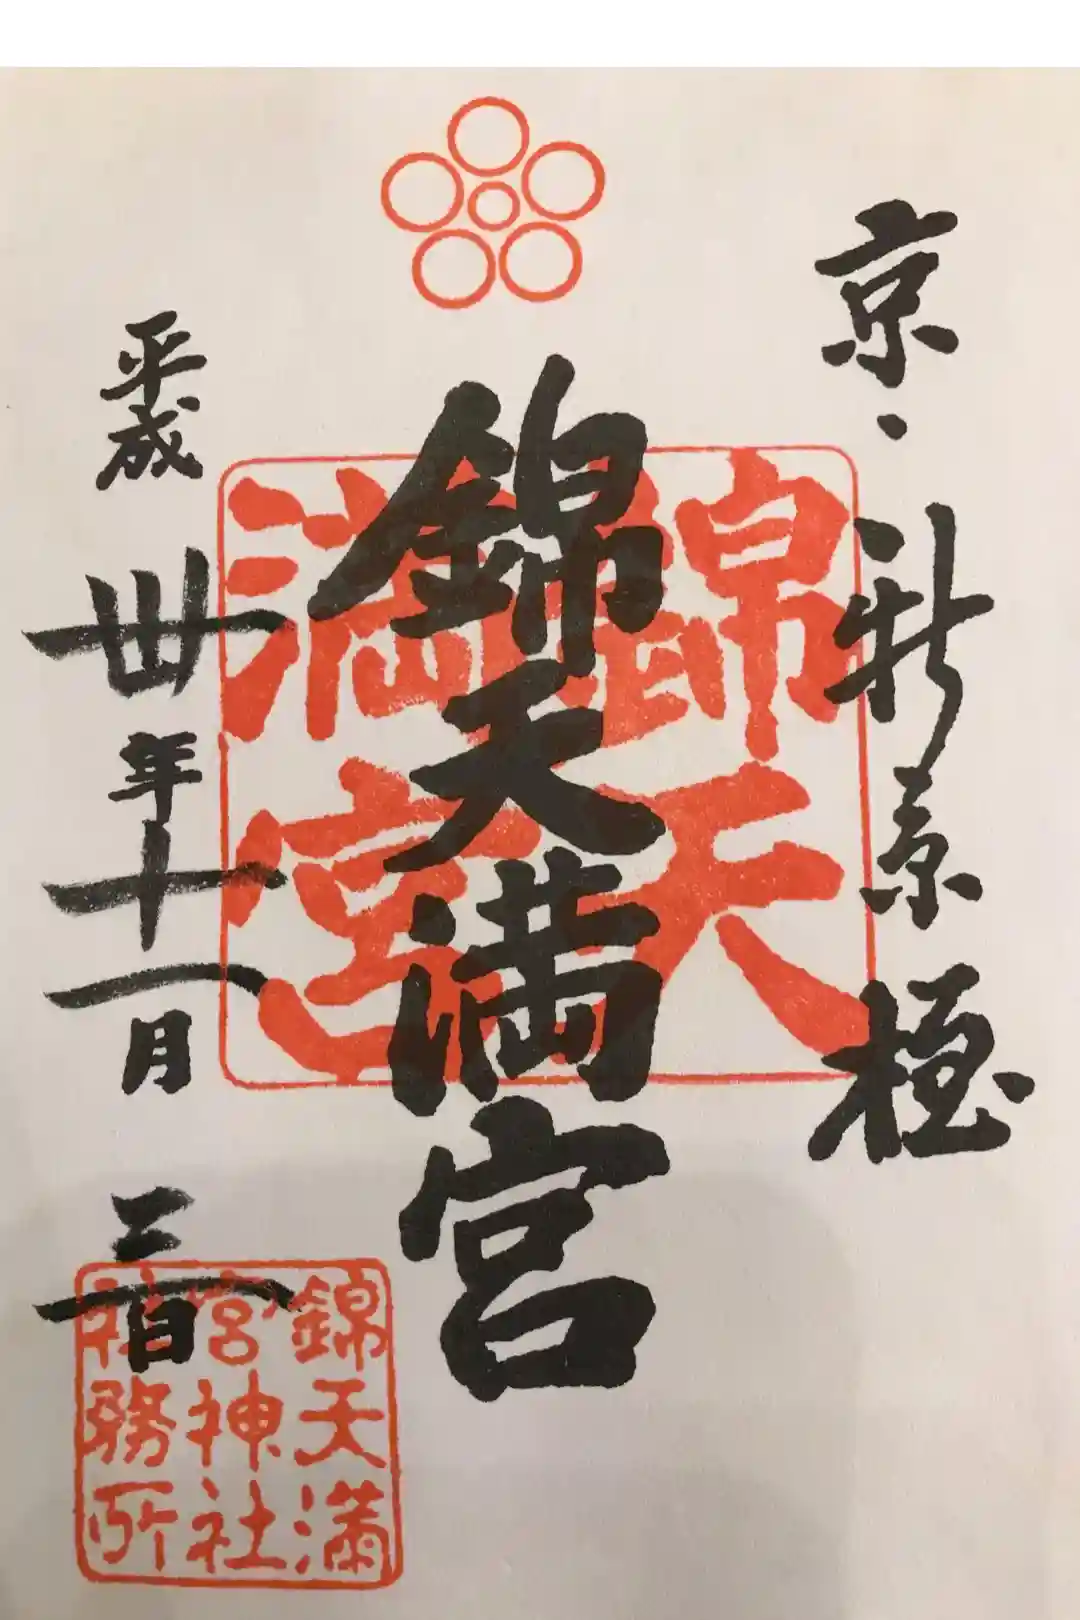 京、新京極
錦天満宮
錦天
満宮
平成丗年十一月三日
錦天満
宮神社
社務所